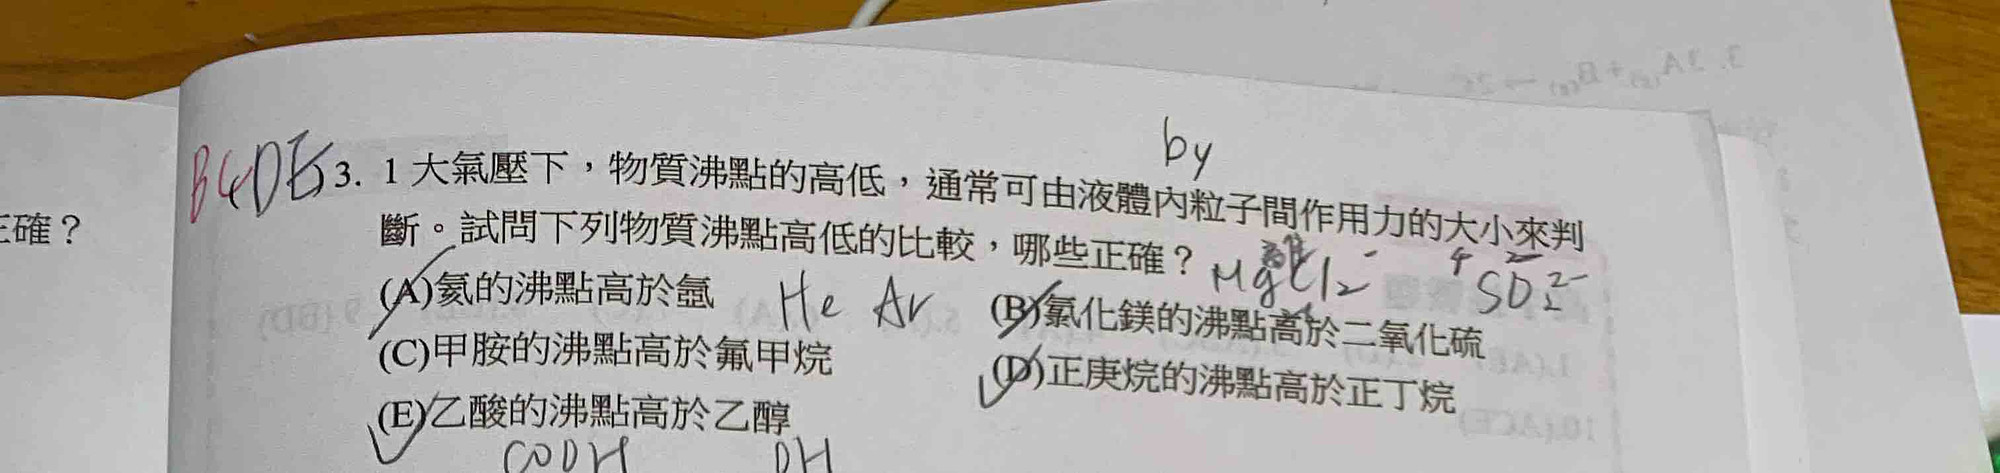 3. 2A(g)+B(g) → 2C
by
BCDE 3. 1 大氣壓下，物質沸點的高低，通常可由液體內粒子間作用力的大小來判
正確？
斷。試問下列物質沸點高低的比較，哪些正確？
MgCl2
(A)氦的沸點高於氬 He Ar (B)氯化鎂的沸點高於二氧化硫
(C)甲胺的沸點高於氟甲烷 (D)正庚烷的沸點高於正丁烷
(E)乙酸的沸點高於乙醇
COOH OH
10.(ACE)